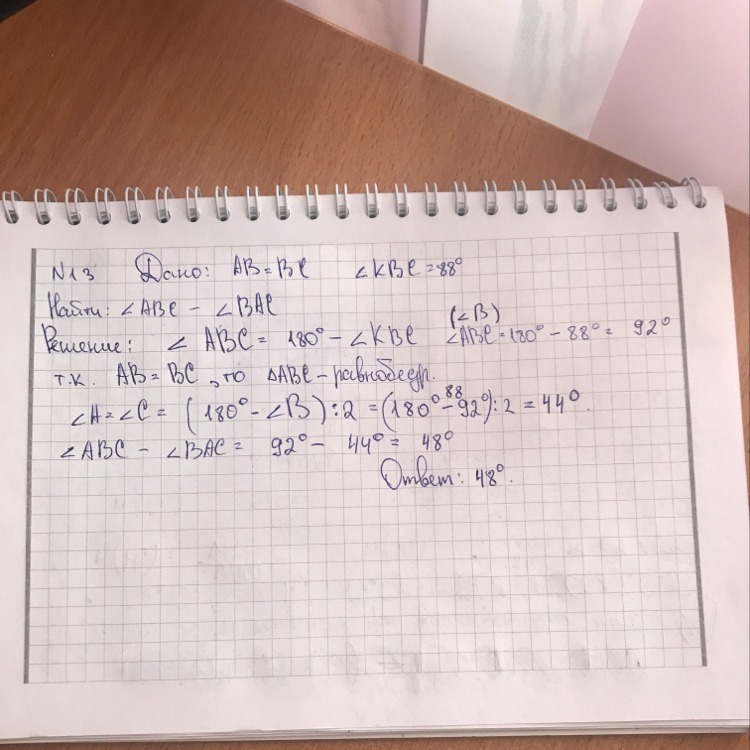 N13 Дано: AB = BC ∠KBC = 88°
Найти: ∠ABC - ∠BAC
Решение: ∠ABC = 180° - ∠KBC (∠B) ∠ABC = 180° - 88° = 92°
т.к. AB = BC, то ΔABC - равнобедр.
∠A = ∠C = (180° - ∠B) : 2 = (180° - 92°) : 2 = 44°. 88
∠ABC - ∠BAC = 92° - 44° = 48°
Ответ: 48°.